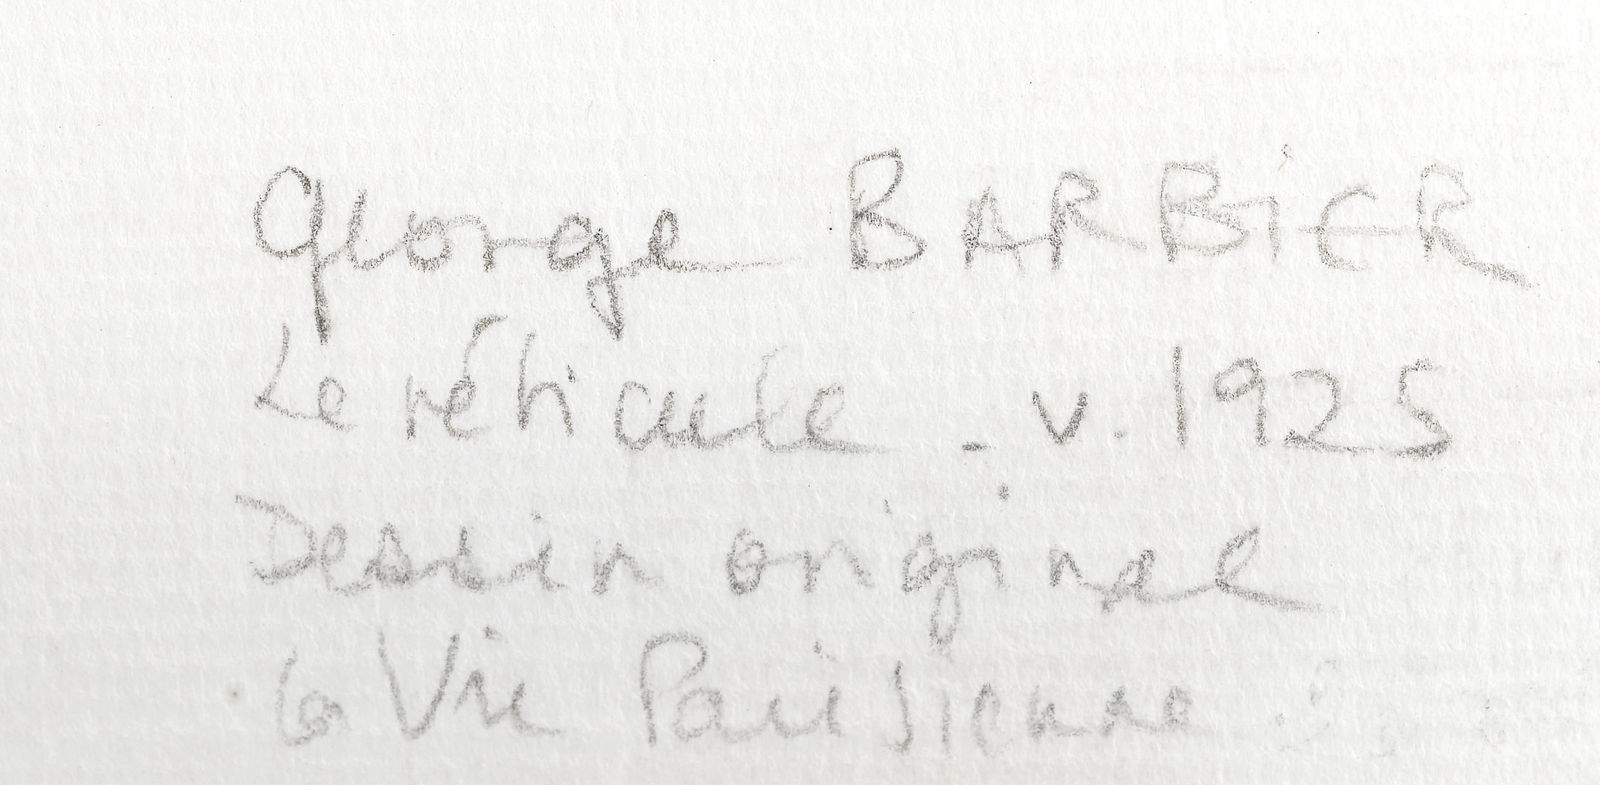 George BARBiER
Le réticule - v. 1925
Dessin original
la Vie Parisienne